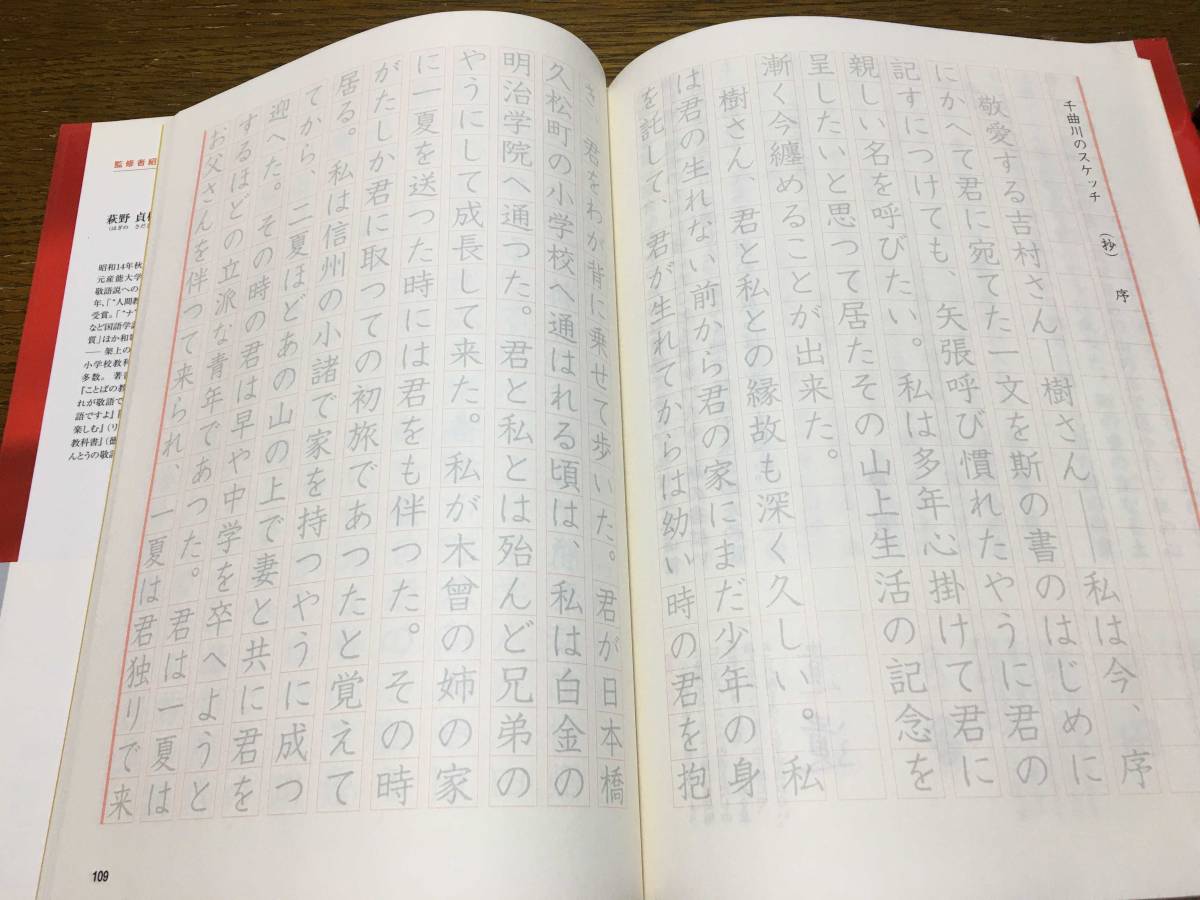 千曲川のスケッチ (抄) 序
敬愛する吉村さん—樹さん——私は今、序
にかへて君に宛てた一文を斯の書のはじめに
記すにつけても、矢張呼び慣れたやうに君の
親しい名を呼びたい。私は多年心掛けて君に
呈したいと思つて居たその山上生活の記念を
漸く今纏めることが出来た。
樹さん、君と私との縁故も深く久しい。私
は君の生れない前から君の家にまだ少年の身
を託して、君が生れてからは幼い時の君を抱
き、君をわが背に乗せて歩いた。君が日本橋
久松町の小学校へ通はれる頃は、私は白金の
明治学院へ通つた。君と私とは殆んど兄弟の
やうにして成長して来た。私が木曾の姉の家
に一夏を送つた時には君をも伴つた。その時
がたしか君に取つての初旅であつたと覚えて
居る。私は信州の小諸で家を持つやうに成つ
てから、二夏ほどあの山の上で妻と共に君を
迎へた。その時の君は早や中学を卒へようと
するほどの立派な青年であつた。君は一夏は
お父さんを伴つて来られ、一夏は君独りで来
109
監修者紹
萩野 貞
(はぎの さだ
昭和14年秋
元産能大学
敬語説への
年、「"人間教
受賞。「"ナ
など国語学
質」ほか和
── 架上の
小学校教科
多数。 著
『ことばの教
れが敬語で
語ですよ』
楽しむ』(リ
教科書』(徳
んとうの敬